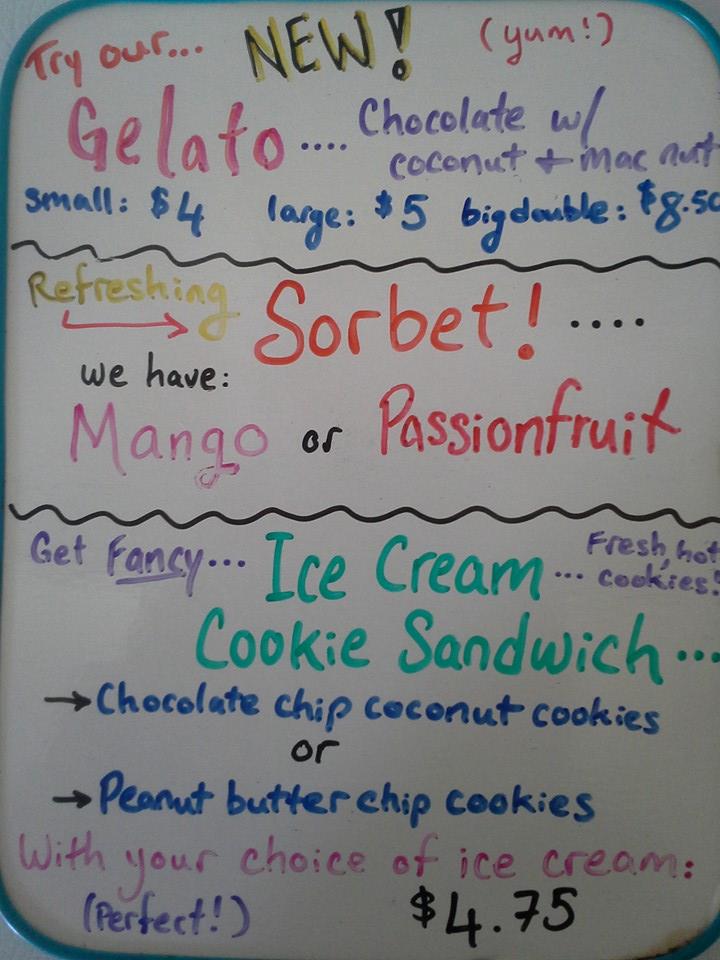 Try our... NEW! (yum!)
Gelato .... Chocolate w/
coconut + mac nut
small: $4 large: $5 big double: $8.50
Refreshing Sorbet! ....
we have:
Mango or Passionfruit
Get Fancy... Ice Cream ... Fresh, hot
cookies!
Cookie Sandwich ...
→ Chocolate chip coconut cookies
or
→ Peanut butter chip cookies
With your choice of ice cream:
(Perfect!) $4.75